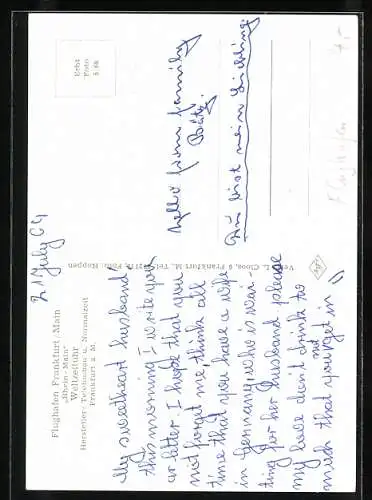 Flughafen Frankfurt/Main
„Rhein-Main“
Weltzeituhr
Hersteller: Telefonbau u. Normalzeit
Frankfurt a. M.
21 July 64
My sweetheart husband!
this morning I write you
ar letter I hope that you
not forget me, think all
time that you have a wife
in germany, who is wai-
ting for her husband please
my love don't drink to
not
much that you get in
Verl. L. Cloos, Frankfurt M. Foto: Koppen
Erbt
Foto
5.66
Hello from family
Du bist mein Liebling.
Flughafen